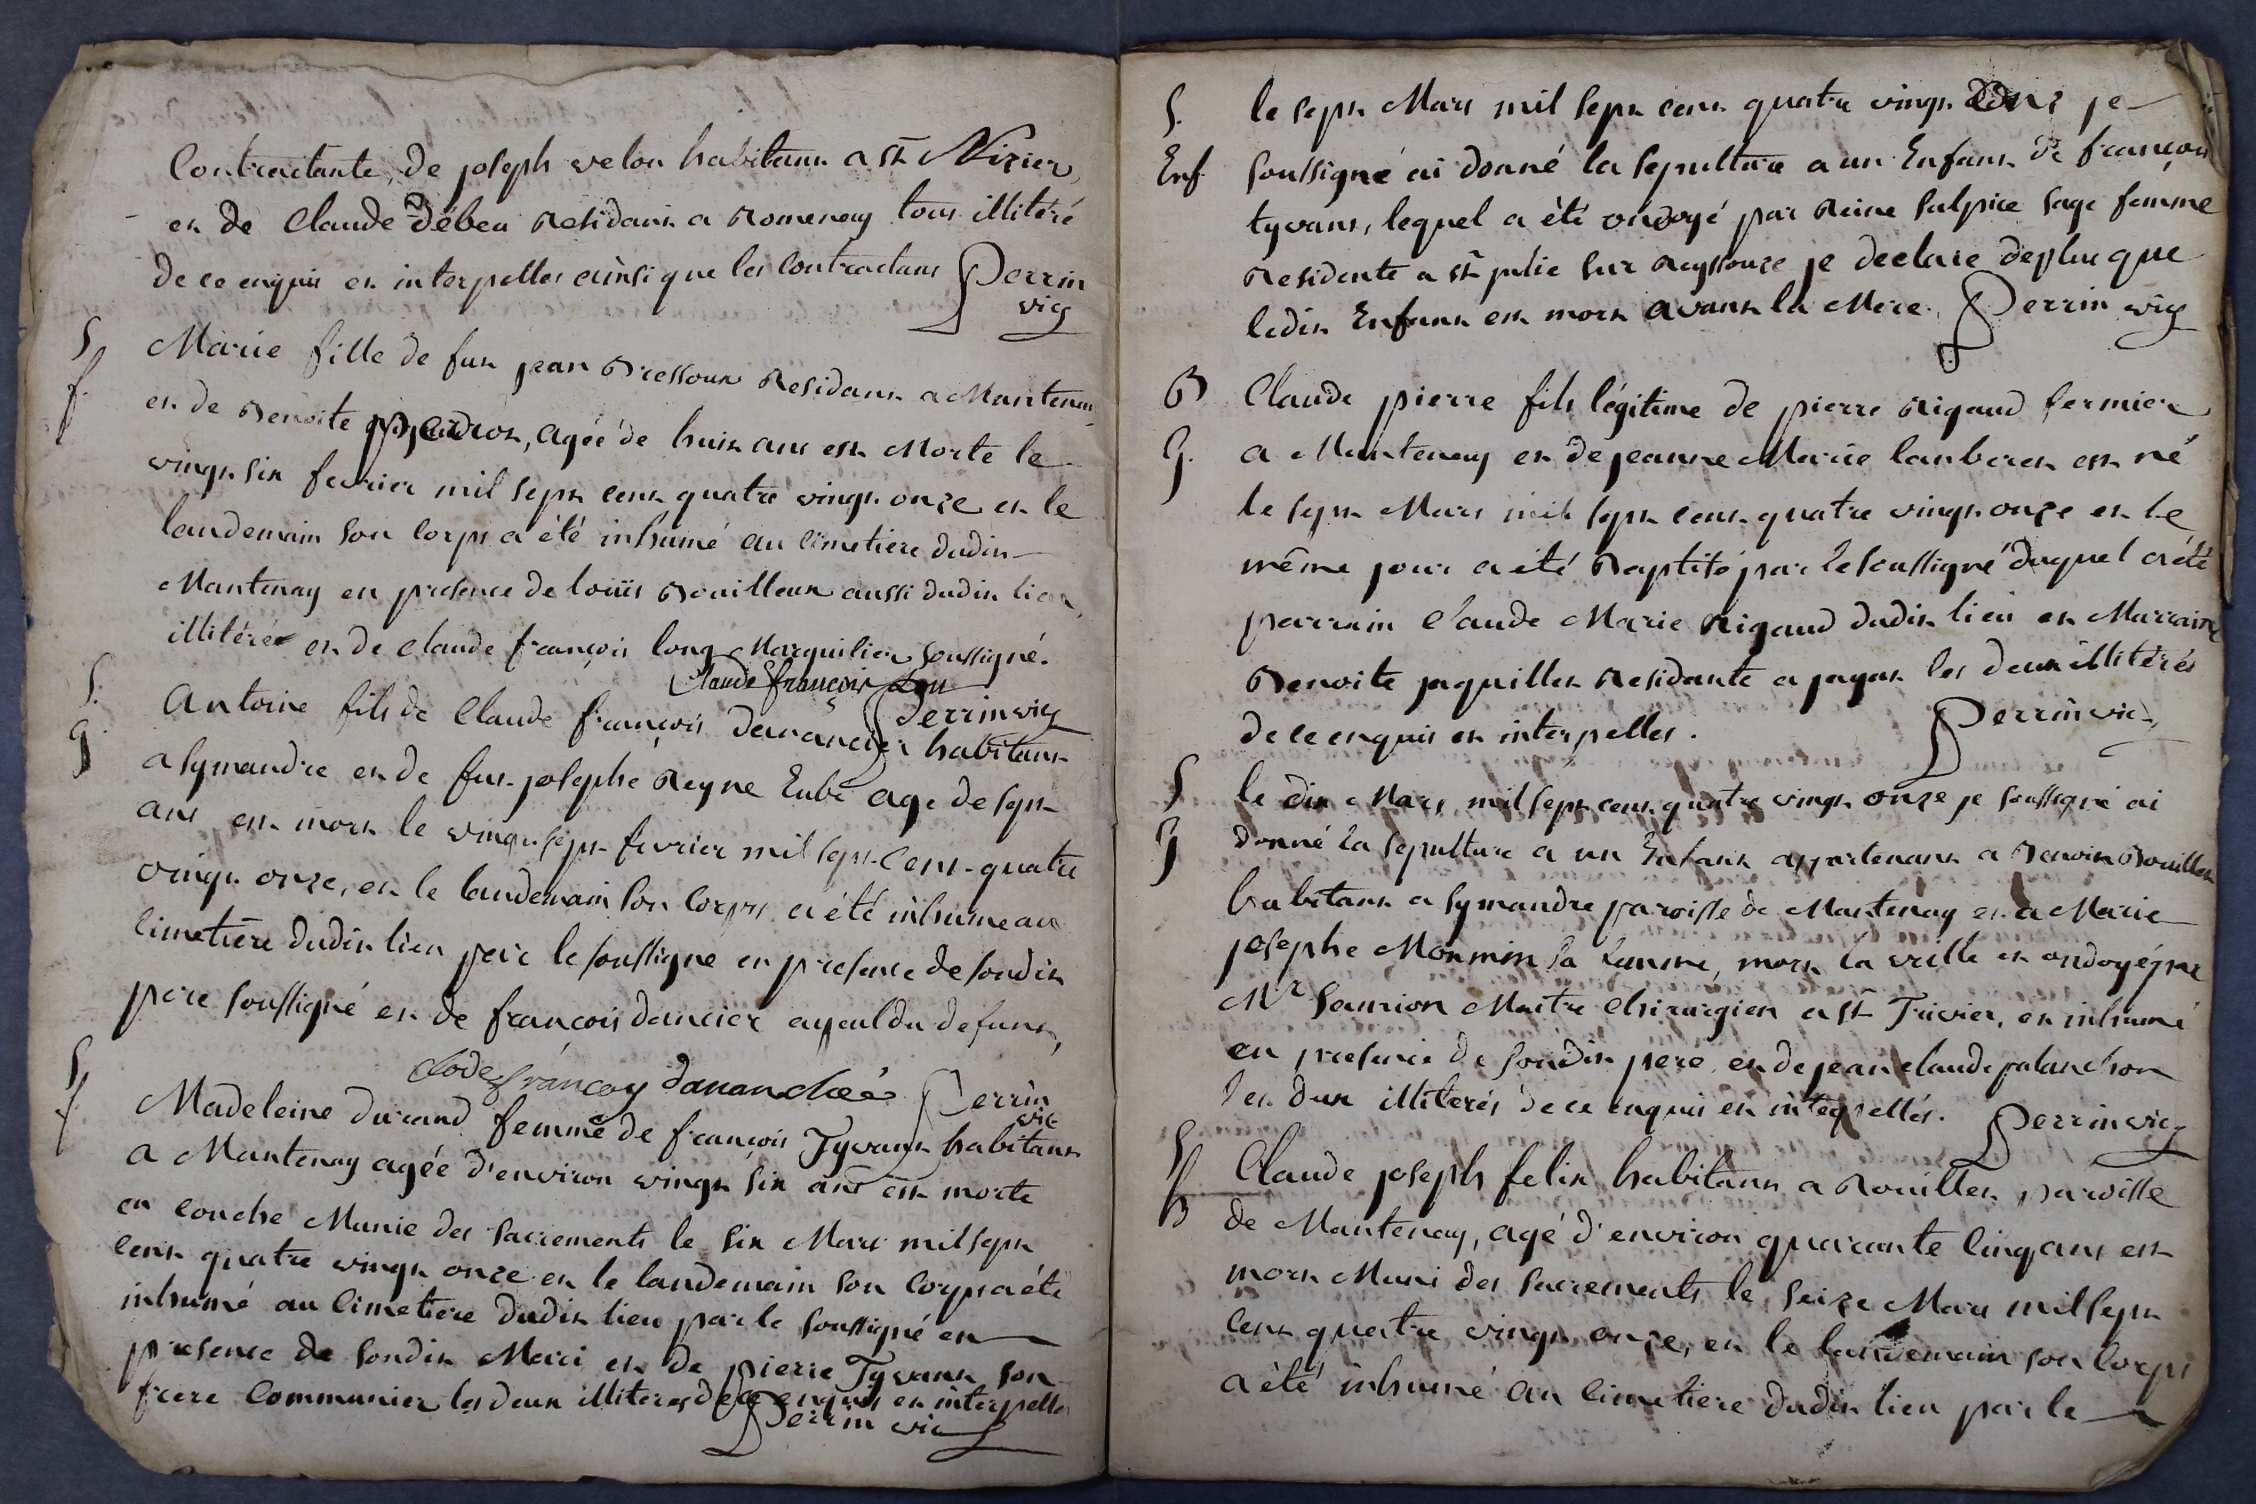 Contractante, de joseph velon habitant a st Nizier,
et de Claude Débeu Residant a Romenay tous illitéré
de ce enquis et interpellés ainsi que les Contractans Perrin
vic
S Marie fille de fut jean Bressoux Residant a Mantenay
f. et de Benoite, agée de huit ans est Morte le
vingt six fevrier mil sept cent quatre vingt onze et le
landemain son Corps a été inhumé au Cimetiere dudit
Mantenay en presence de loüis Bouilloux aussi dudit lieu,
illitéré et de claude françois long Marguilier soussigné.
Claude françois Lon
Perrin vic
S. Antoine fils de Claude françois dananchier habitant
G a symandre et de fut josephe Reyne Eubé agé de sept
ans est mort le vingt sept fevrier mil sept cent quatre
vingt onze, et le landemain son Corps a été inhumé au
Cimetière dudit lieu par le soussigné en presence de soudit
pere soussigné et de françois dancier ayeul du defunt,
Clode françoy danancheé Perrin
vic
S Madeleine durand femme de françois Tyvant habitant
f. a Mantenay agée d'environ vingt six ans est morte
en couche Munie des sacrements le six Mars mil sept
cent quatre vingt onze et le landemain son Corps a été
inhumé au Cimetiere dudit lieu par le soussigné en
presence de soudit Mari et de pierre Tyvant son
frere Communier les deux illiterés de ce enquis et interpellés
Perrin vic
S. le sept Mars mil sept cent quatre vingt onze je
Enf. soussigné ai donné la sepulture a un Enfant de françois
tyvant, lequel a été ondoyé par Reine sulpice sage femme
Residente a st julie sur Reyssouze je declare deplus que
ledit Enfant est mort avant la Mere. Perrin vic
B Claude pierre fils légitime de pierre Rigaud fermier
G. a Mantenay et de jeanne Marie lauberet est né
le sept Mars mil sept cent quatre vingt onze et le
même jour a été Baptisé par le soussigné duquel a été
parrain Claude Marie Rigaud dudit lieu et Marraine
Benoite jaquillet Residante a jayat les deux illiterés
de ce enquis et interpellés. Perrin vic
S le dix Mars mil sept cent quatre vingt onze je soussigné ai
G donné la sepulture a un Enfant appartenant a Benoit Bouilloux
habitant a symandre paroisse de Mantenay et a Marie
josephe Monmin sa femme, mort la veille et ondoyé par
Mr Samion Maitre Chirurgien a st Trivier, et inhumé
en presence de soudit pere et de jean claude palanchon
les deux illiterés de ce enquis et interpellés. Perrin vic
S Claude joseph felix habitant a Rouillet paroisse
h de Mantenay, agé d'environ quarante cinq ans est
mort Muni des sacrements le seize Mars mil sept
Cent quatre vingt onze, et le landemain son Corps
a été inhumé au Cimetiere dudit lieu par le